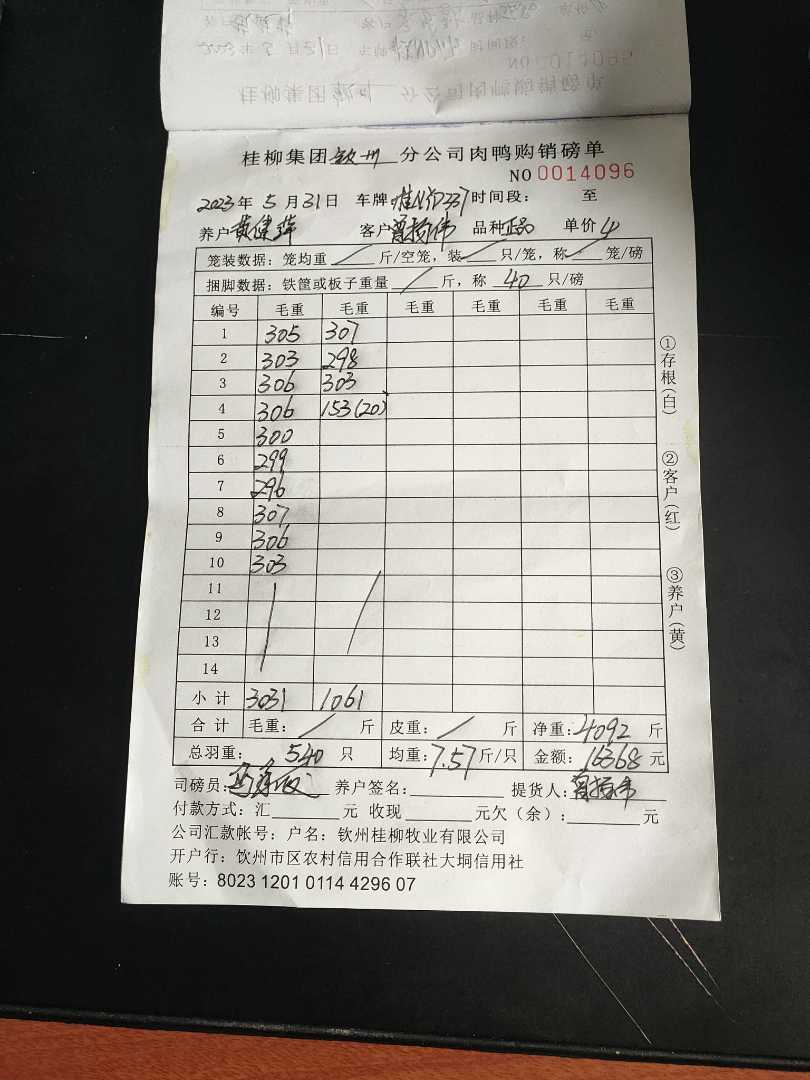 桂柳集团钦州分公司肉鸭购销磅单
NO 0014096
2023年5月31日 车牌: 时间段: 至
养户黄健萍 客户曾扬伟 品种正品 单价4
笼装数据: 笼均重/斤/空笼, 装/只/笼, 称/笼/磅
捆脚数据: 铁筐或板子重量/斤, 称40只/磅
编号 毛重 毛重 毛重 毛重 毛重 毛重
1 305 307
2 303 298
3 306 303
4 306 153(20)
5 300
6 299
7 296
8 307
9 306
10 303
11
12
13
14
小计 3031 1061
合计 毛重: / 斤 皮重: / 斤 净重:4092斤
总羽重: 540 只 均重:7.57斤/只 金额:16368元
司磅员: 养户签名: 提货人:曾扬伟
付款方式: 汇 元 收现 元欠(余): 元
公司汇款帐号: 户名: 钦州桂柳牧业有限公司
开户行: 饮州市区农村信用合作联社大垌信用社
账号: 8023 1201 0114 4296 07
①存根(白)
②客户(红)
③养户(黄)